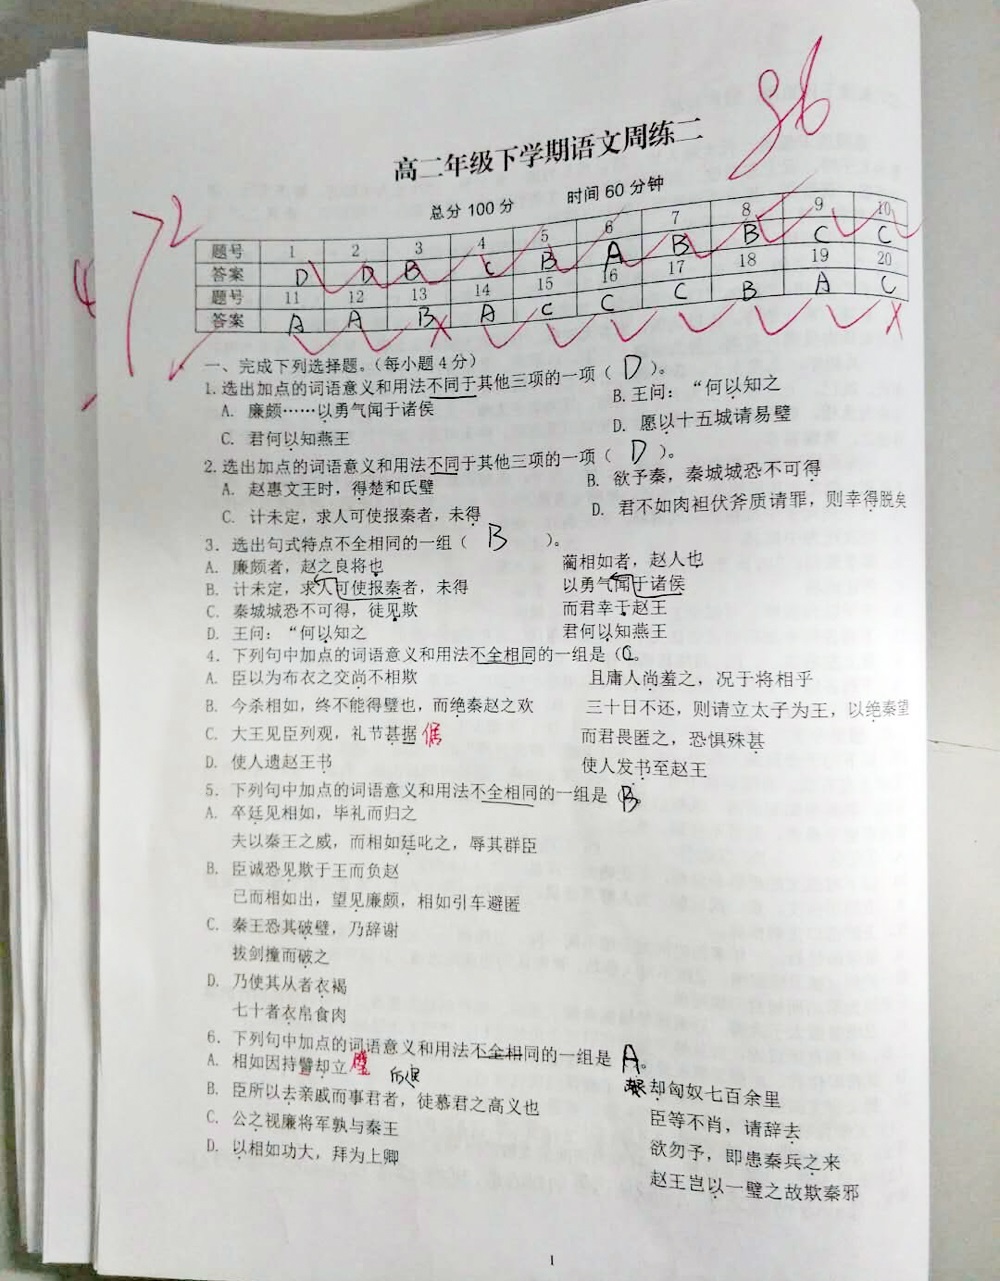 86
高二年级下学期语文周练二
总分 100 分 时间 60 分钟
72
题号 1 2 3 4 5 6 7 8 9 10
答案 D D B C B A B B C C
题号 11 12 13 14 15 16 17 18 19 20
答案 A A B A C C C B A C
一、完成下列选择题。(每小题 4 分)
1.选出加点的词语意义和用法不同于其他三项的一项( D )。
A. 廉颇……以勇气闻于诸侯 B.王问:“何以知之
C. 君何以知燕王 D. 愿以十五城请易璧
2.选出加点的词语意义和用法不同于其他三项的一项( D )。
A. 赵惠文王时,得楚和氏璧 B. 欲予秦,秦城城恐不可得
C. 计未定,求人可使报秦者,未得 D. 君不如肉袒伏斧质请罪,则幸得脱矣
3. 选出句式特点不全相同的一组( B )。
A. 廉颇者,赵之良将也 蔺相如者,赵人也
B. 计未定,求人可使报秦者,未得 以勇气闻于诸侯
C. 秦城城恐不可得,徒见欺 而君幸于赵王
D. 王问:“何以知之 君何以知燕王
4. 下列句中加点的词语意义和用法不全相同的一组是(C。
A. 臣以为布衣之交尚不相欺 且庸人尚羞之,况于将相乎
B. 今杀相如,终不能得璧也,而绝秦赵之欢 三十日不还,则请立太子为王,以绝秦望
C. 大王见臣列观,礼节甚据 倨 而君畏匿之,恐惧殊甚
D. 使人遗赵王书 使人发书至赵王
5. 下列句中加点的词语意义和用法不全相同的一组是(B。
A. 卒廷见相如,毕礼而归之
夫以秦王之威,而相如廷叱之,辱其群臣
B. 臣诚恐见欺于王而负赵
已而相如出,望见廉颇,相如引车避匿
C. 秦王恐其破璧,乃辞谢
拔剑撞而破之
D. 乃使其从者衣褐
七十者衣帛食肉
6. 下列句中加点的词语意义和用法不全相同的一组是 A。
A. 相如因持譬却立 璧 后退 却匈奴七百余里
B. 臣所以去亲戚而事君者,徒慕君之高义也 臣等不肖,请辞去
C. 公之视廉将军孰与秦王 欲勿予,即患秦兵之来
D. 以相如功大,拜为上卿 赵王岂以一璧之故欺秦邪
1